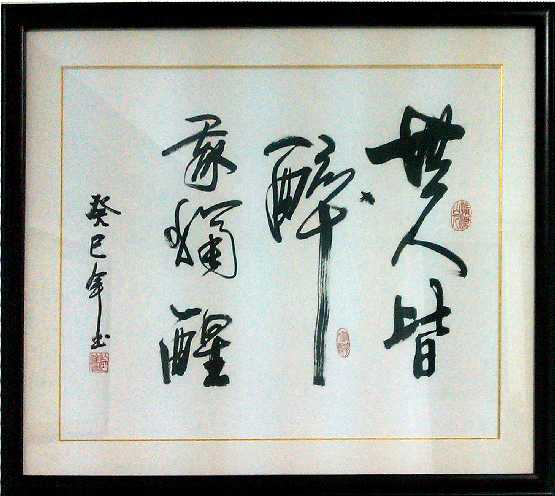 世人皆
醉
我獨醒
癸巳年书